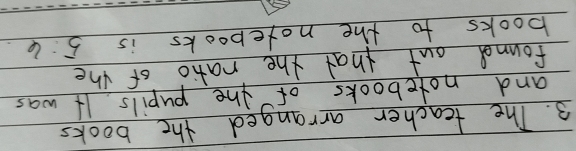 3. The teacher arranged the books
and notebooks of the pupils. It was
found out that the ratio of the
books to the notebooks is 5:6.